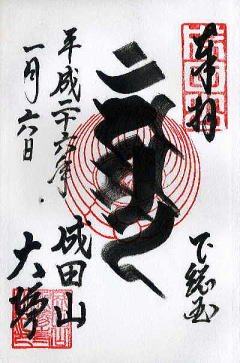 奉拝
下総国
平成二十六年
一月六日
成田山